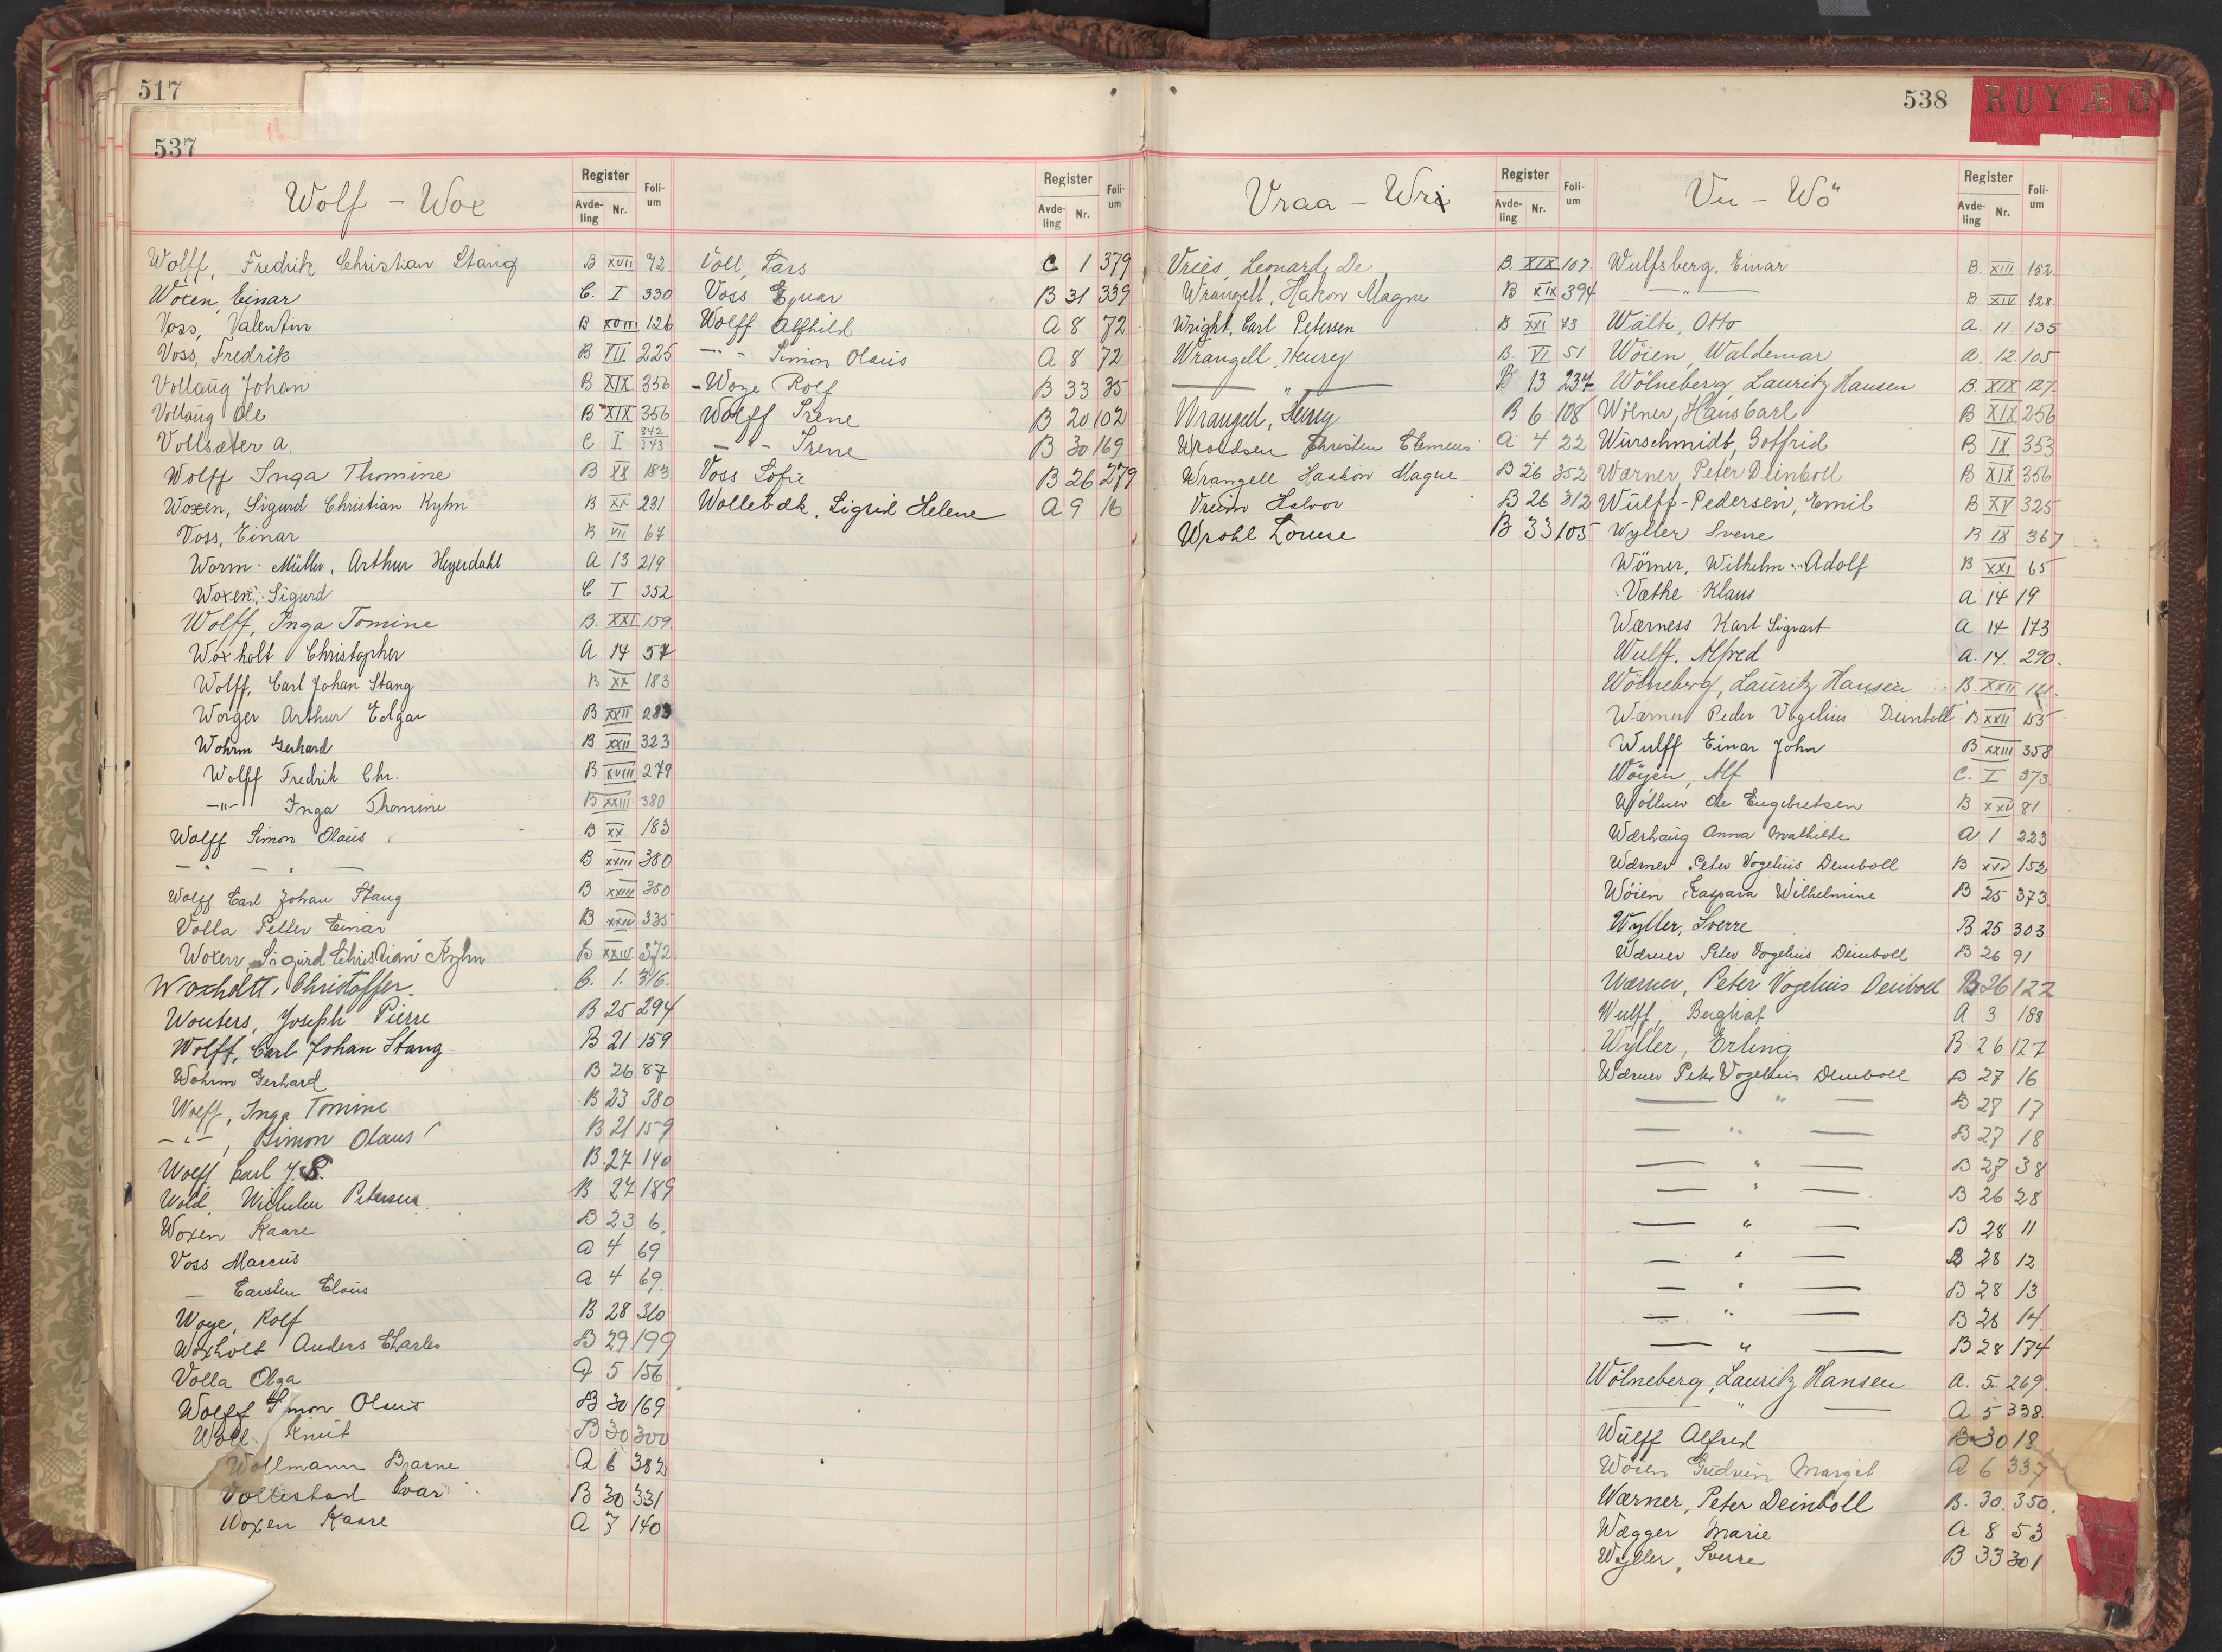 517
537
Wolf - Wox
Register
Avde-ling Nr. Foli-um
Wolff, Fredrik Christian Stang B XVII 42
Woxen, Einar C. I 330
Voss, Valentin B XVIII 126
Voss, Fredrik B VII 225
Vollaug Johan B XIX 356
Vollaug Ole B XIX 356
Vollsæter A. C I 342 343
Wolff Inga Thomine B XX 183
Woxen, Sigurd Christian Kyhn B XX 231
Voss, Einar B VII 67
Worm-Müller, Arthur Heyerdahl A 13 219
Woxen, Sigurd C I 352
Wolff, Inga Tomine B. XXI 159
Woxholt Christopher A 14 57
Wolff, Carl Johan Stang B XX 183
Worger Arthur Edgar B XXII 283
Wohrm Gerhard B XXII 323
Wolff Fredrik Chr. B XVIII 279
-"- Inga Thomine B XXIII 380
Wolff Simon Olaus B XX 183
- " - B XXIII 380
Wolff Carl Johan Stang B XXIII 380
Volla Petter Einar B XXIV 335
Woxen, Sigurd Christian Kyhn B XXIV. 372
Woxholtt, Christoffer. C. 1. 316.
Wouters, Joseph Pierre B 25 294
Wolff, Carl Johan Stang B 21 159
Wohrm Gerhard B 26 87
Wolff, Inga Tomine B 23 380
-"-, Simon Olaus B 21 159
Wolff Carl J. S. B. 27 140
Wold, Wilhelm Petersen B 27 189
Woxen Kaare B 23 6
Voss Marcus A 4 69
— Carsten Claus A 4 69
Woye, Rolf B 28 310
Woxholt Anders Charles B 29 199
Volla Olga A 5 156
Wolff Simon Olaus B 30 169
Woll Knut B 30 300
Wollmann Bjarne A 6 382
Vollestad Ivar B 30 331
Woxen Kaare A 7 140
Register
Avde-ling Nr. Foli-um
Voll, Lars C 1 379
Voss Ejnar B 31 339
Wolff Alfhild A 8 72
-"- Simon Olaus A 8 72
Woye Rolf B 33 35
Wolff Irene B 20 102
-"- Irene B 30 169
Voss Sofie B 26 279
Wollebæk, Sigrid Helene A 9 16
538
R U Y Æ Ø
Vraa - Wri
Register
Avde-ling Nr. Foli-um
Vries, Leonard De B. XIX 107.
Wrangell, Hakon Magne B XIX 394
Wright, Carl Petersen B XXI 73
Wrangell, Henry B. VI 51
— " — B 13 237
Wrangel, Henry B 6 108
Wroldsen Christen Clemens A 4 22
Wrangell Haakon Magne B 26 352
Vreim Halvor B 26 312
Wrohl Louise B 33 105
Vu - Wö
Register
Avde-ling Nr. Foli-um
Wulfsberg, Einar B. XIII 152.
— " — B. XIV 128.
Wälti, Otto A. 11. 135
Wöien, Waldemar A. 12 105
Wölneberg Lauritz Hansen B XIX 127.
Wölner, Hans Carl B XIX 256
Würschmidt, Gottfrid B IX 353
Wærner, Peter Deinboll B XIX 356
Wulff-Pedersen, Emil B XV 325
Wyller Sverre B IX 367
Wörner, Wilhelm Adolf B XXI 65
Væthe Klaus A 14 19
Wærness Karl Sigvart A 14 173
Wulff, Alfred A. 14. 290.
Wölneberg, Lauritz Hansen B. XXII 121.
Wærner Peder Vogelius Deinboll B XXII 155
Wulff Einar John B XXIII 358
Wöyen, Alf C. I 373
Wöllner Ole Engebretsen B XXV 81
Wærhaug Anna Mathilde A 1 223
Wærner Peter Vogelius Deinboll B XXV 152
Wöien Kaspara Wilhelmine B 25 373
Wyller, Sverre B 25 303
Wærner Peter Vogelius Deinboll B 26 91
Wærner, Peter Vogelius Deinboll B 26 122
Wulff, Bergliot A 3 188
Wyller, Erling B 26 127
Wærner Peter Vogelius Deinboll B 27 16
— " — B 27 17
— " — B 27 18
— " — B 27 38
— " — B 26 28
— " — B 28 11
— " — B 28 12
— " — B 28 13
— " — B 28 14
— " — B 28 174
Wölneberg, Lauritz Hansen A. 5. 269.
— " — A 5 338.
Wulff Alfred B 30 18
Wöien Gudrun Margit A 6 337
Wærner, Peter Deinboll B. 30. 350.
Wægger Marie A 8 53
Wyller, Sverre B 33 301